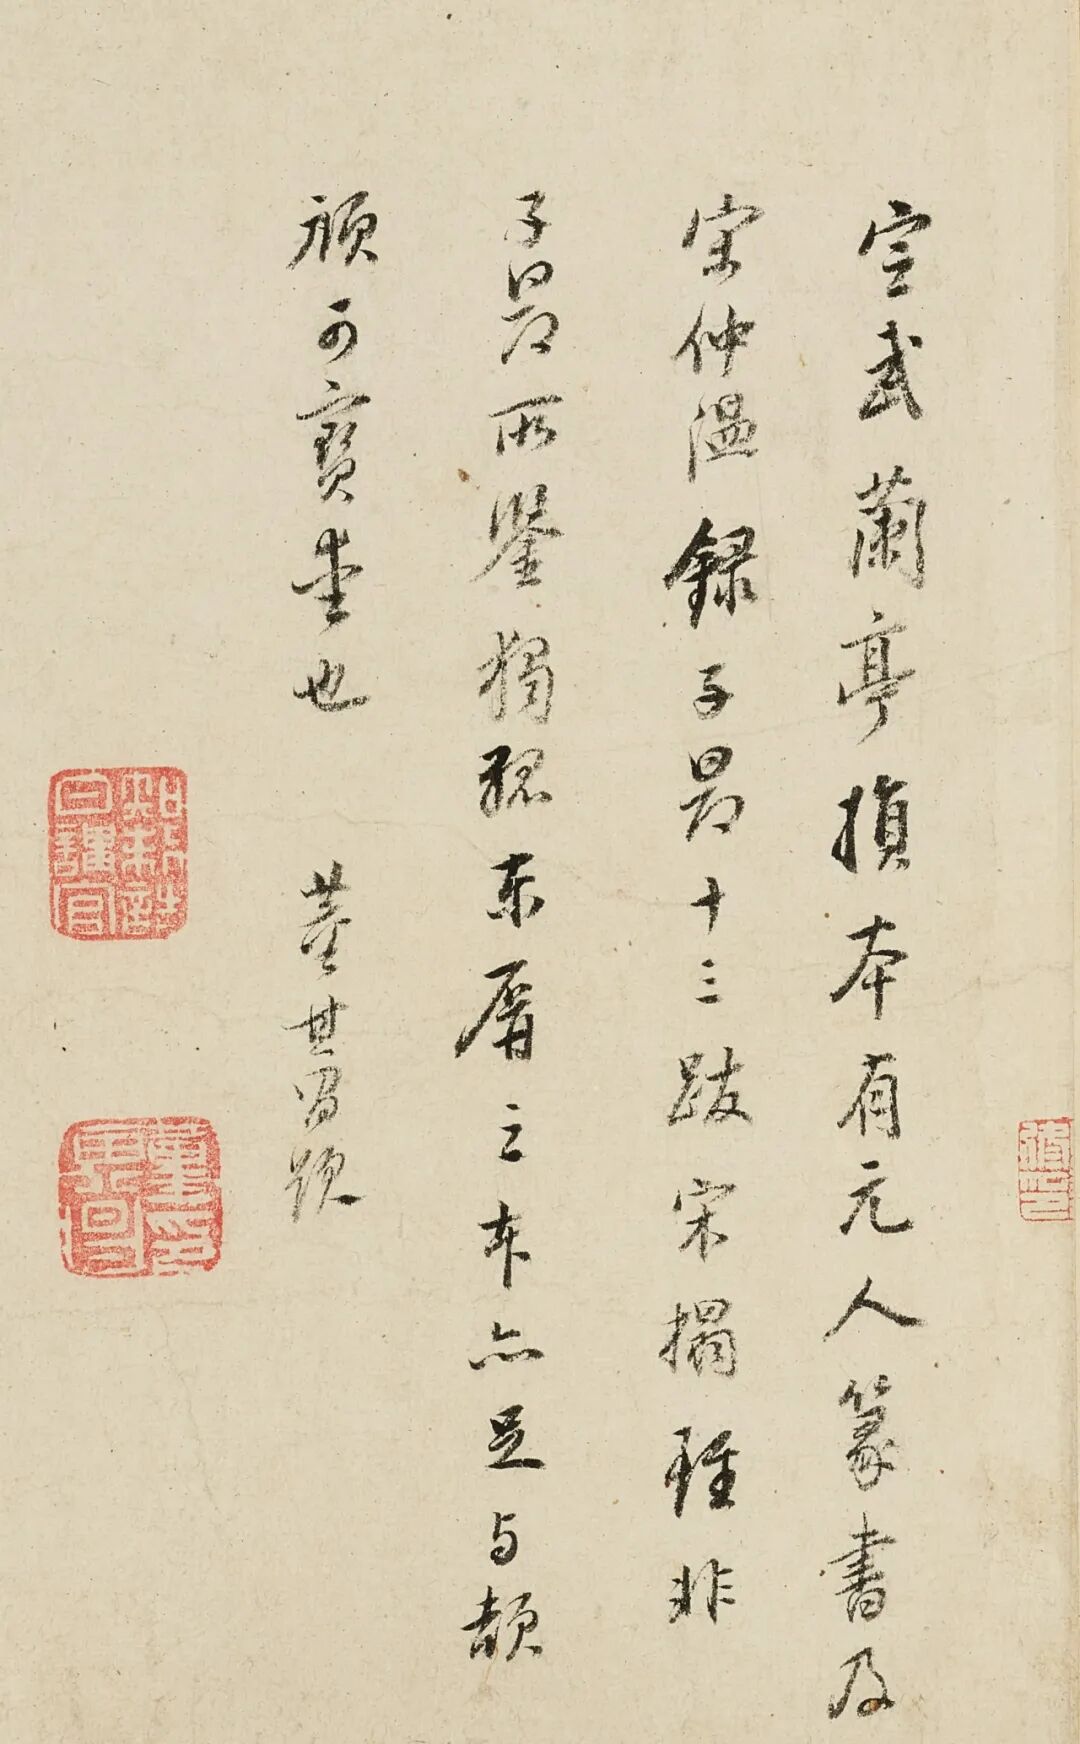 定武蘭亭損本有元人篆書及
宋仲温録子昂十三跋宋搨雖非
子昂所鑒獨孤東屏之本亦足与頡
頏可寶重也 董其昌題
知制誥日講官